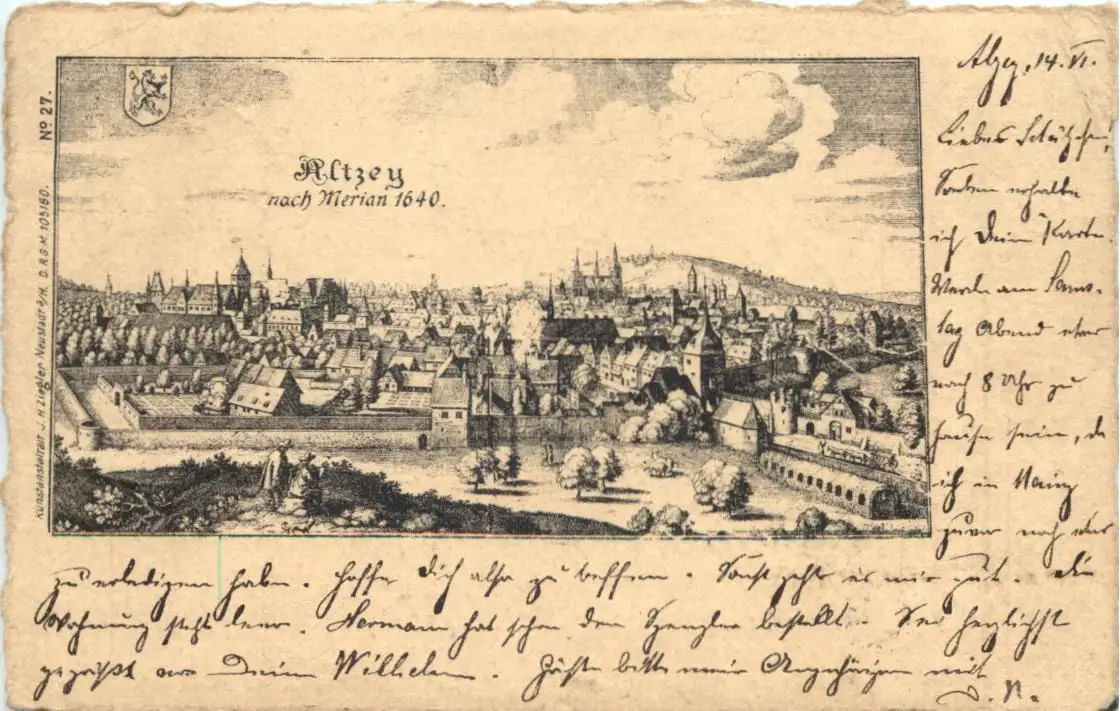 Nº 27.
Kunstanstalt J. H. Ziegler Neustadt a/H. D.R.G.M. 105180.
Altzey
nach Merian 1640.
Alzey, 14. VI.
Liebes
Soeben erhalte
ich Deine Karte.
Werde am Sams-
tag Abend etwa
nach 8 Uhr zu
Hause sein, da
ich in Mainz
zuvor noch etwas
zu erledigen habe. Hoffe Dich also zu treffen. Sonst geht es mir gut. Die
Wohnung steht leer. Hermann hat schon den Spengler bestellt. Sei herzlichst
gegrüßt von Deinem Wilhelm. bitte meine Angehörigen mit